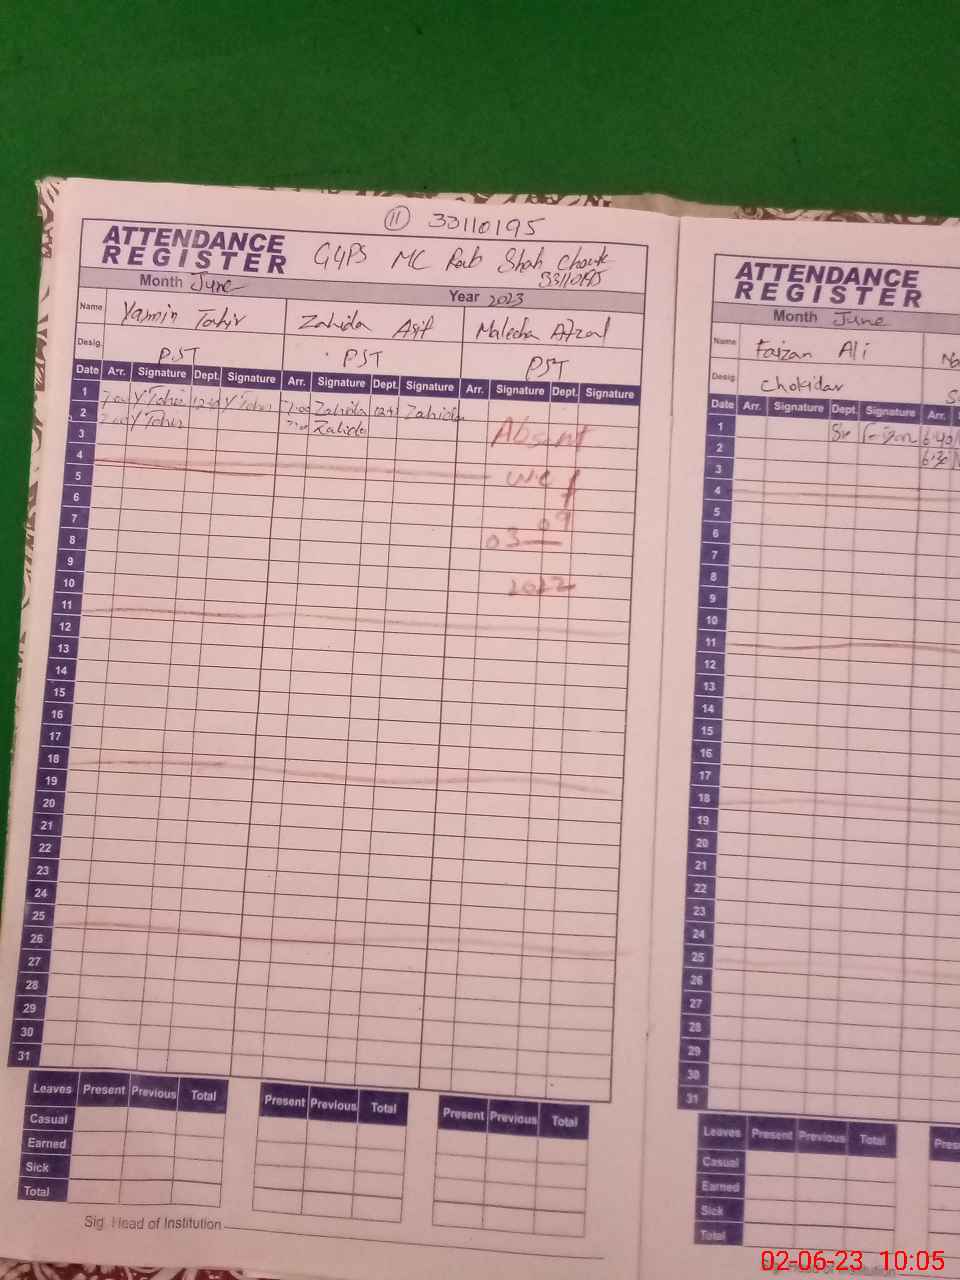 11 33110195
ATTENDANCE
REGISTER
G4PS MC Rab Shah Chowk
33110195
Month June Year 2023
Name Yasmin Tahir Zahida Asif Maleeha Afzal
Desig. PST PST PST
Date Arr. Signature Dept. Signature Arr. Signature Dept. Signature Arr. Signature Dept. Signature
1 7:00 Y Tahir Y Tahir 7:00 Zahida Zahida
2 7:00 Y Tahir Zahida
Absent
3
4
5 w e f
6
7 09
8 03
9
10 2022
11
12
13
14
15
16
17
18
19
20
21
22
23
24
25
26
27
28
29
30
31
Leaves Present Previous Total Present Previous Total Present Previous Total
Casual
Earned
Sick
Total
Sig. Head of Institution
ATTENDANCE
REGISTER
Month June
Name Faizan Ali
Desig. Chokidar
Date Arr. Signature Dept. Signature Arr.
1 6:40
2 6:30
3
4
5
6
7
8
9
10
11
12
13
14
15
16
17
18
19
20
21
22
23
24
25
26
27
28
29
30
31
Leaves Present Previous Total
Casual
Earned
Sick
Total
Sig. Head of Institution
02-06-23 10:05